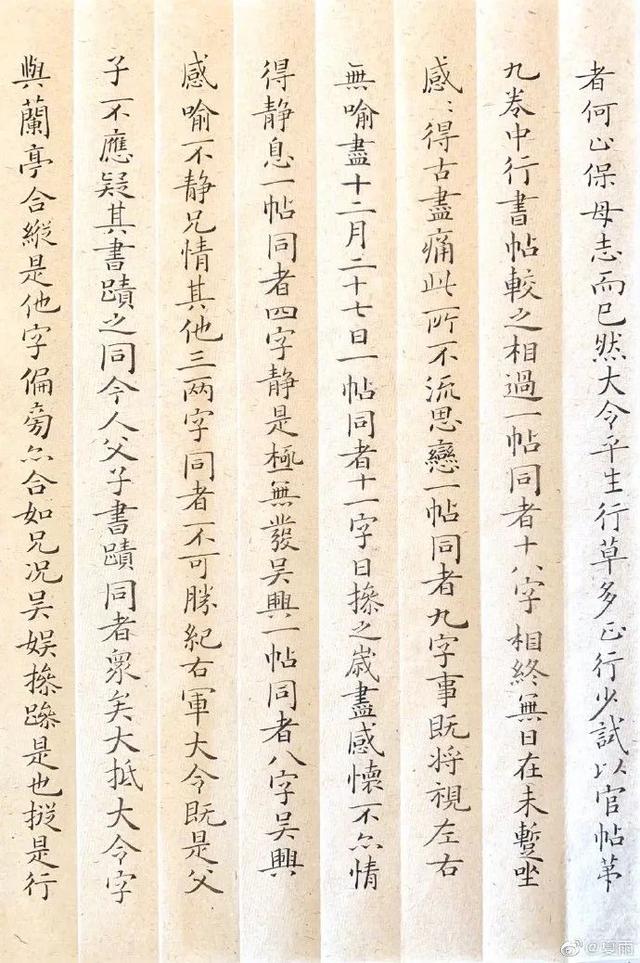 者何止保母志而已然大令平生行草多正行少試以官帖苐
九卷中行書帖較之相過一帖同者十八字相終無日在未蹔坐
感〻得古盡痛此所不流思戀一帖同者九字事既将視左右
無喻盡十二月二十七日一帖同者十一字日操之歲盡感懷不亦情
得静息一帖同者四字静是極無發吴興一帖同者八字吴興
感喻不静兄情其他三两字同者不可勝紀右軍大令既是父
子不應疑其書蹟之同今人父子書蹟同者衆矣大抵大令字
與蘭亭合縱是他字偏旁亦合如兄况吴娱操躁是也摐是行
@夏雨